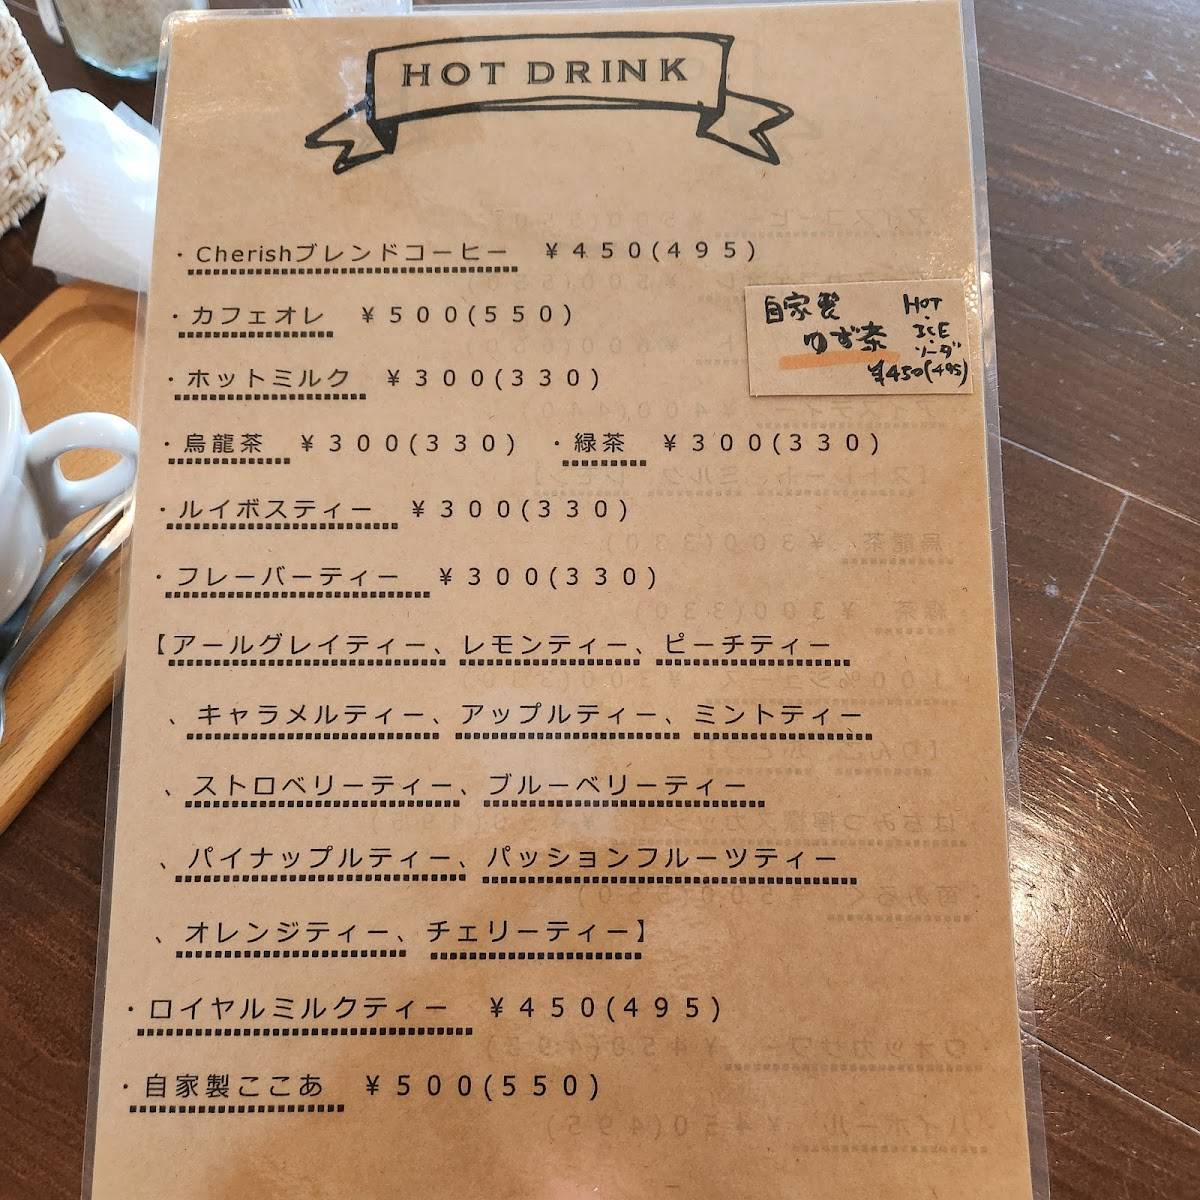 HOT DRINK
・Cherishブレンドコーヒー　¥450(495)
・カフェオレ　¥500(550)
自家製
ゆず茶
HOT
・
ICE
ソーダ
¥450(495)
・ホットミルク　¥300(330)
・烏龍茶　¥300(330)　・緑茶　¥300(330)
・ルイボスティー　¥300(330)
・フレーバーティー　¥300(330)
【アールグレイティー、レモンティー、ピーチティー
、キャラメルティー、アップルティー、ミントティー
、ストロベリーティー、ブルーベリーティー
、パイナップルティー、パッションフルーツティー
、オレンジティー、チェリーティー】
・ロイヤルミルクティー　¥450(495)
・自家製ここあ　¥500(550)